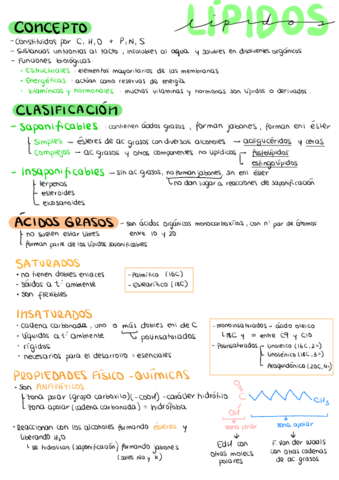 LÍPIDOS
lípidos
CONCEPTO
- Constituidos por C, H, O + P, N, S
- Sustancias untuosas al tacto, insolubles al agua y solubles en disolventes orgánicos
- Funciones biológicas:
· Estructurales: elementos mayoritarios de las membranas
· Energéticas: actúan como reservas de energía
· Vitamínicos y hormonales: muchas vitaminas y hormonas son lípidos o derivados.
CLASIFICACIÓN
- Saponificables: contienen ácidos grasos, forman jabones, forman enl éster
Simples - ésteres de ac grasos con diversos alcoholes → acilglicéridos y ceras
Complejos → ac grasos y otros componentes no lipídicos
fosfolípidos
esfingolípidos
- Insaponificables → sin ac grasos, no forman jabones, sin enl éster
no dan lugar a reacciones de saponificación
terpenos
esteroides
eicosanoides
ÁCIDOS GRASOS - son ácidos orgánicos monocarboxílicos, con nº par de átomos
entre 10 y 20
no suelen estar libres
forman parte de los lípidos saponificables
SATURADOS
· no tienen dobles enlaces
· sólidos a tª ambiente
· son flexibles
- Palmítico (16C)
- Esteárico (18C)
INSATURADOS
· cadena carbonada, uno o más dobles enl de C
· líquidos a tª ambiente
poliinsaturados
· rígidos
· necesarios para el desarrollo = esenciales
- monoinsaturados - ácido oleico
18C y = entre C9 y C10
- Poliinsaturados
Linoleico (18C, 2=)
Linolénico (18C, 3=)
Araquidónico (20C, 4=)
PROPIEDADES FÍSICO-QUÍMICAS
· Son ANFIPÁTICOS
zona polar (grupo carboxilo)(-COOH) - carácter hidrófilo
zona apolar (cadena carbonada) = hidrófoba
· Reaccionan con los alcoholes formando ésteres y
liberando H₂O
se hidrolizan (saponificación) formando jabones
(sales Na y K)
O
C
OH
zona polar
zona apolar
EdH con
otras molecs
polares
F. Van der Waals
con otras cadenas
de ac grasos